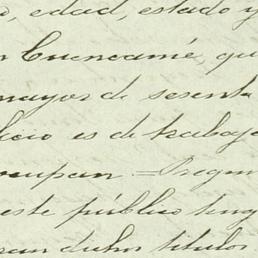 , edad, estado y
n Cuencamé, qu
mayor de sesenta
licio es de trabajo
ocupan = Pregun
este público tug
pan dichos titulos